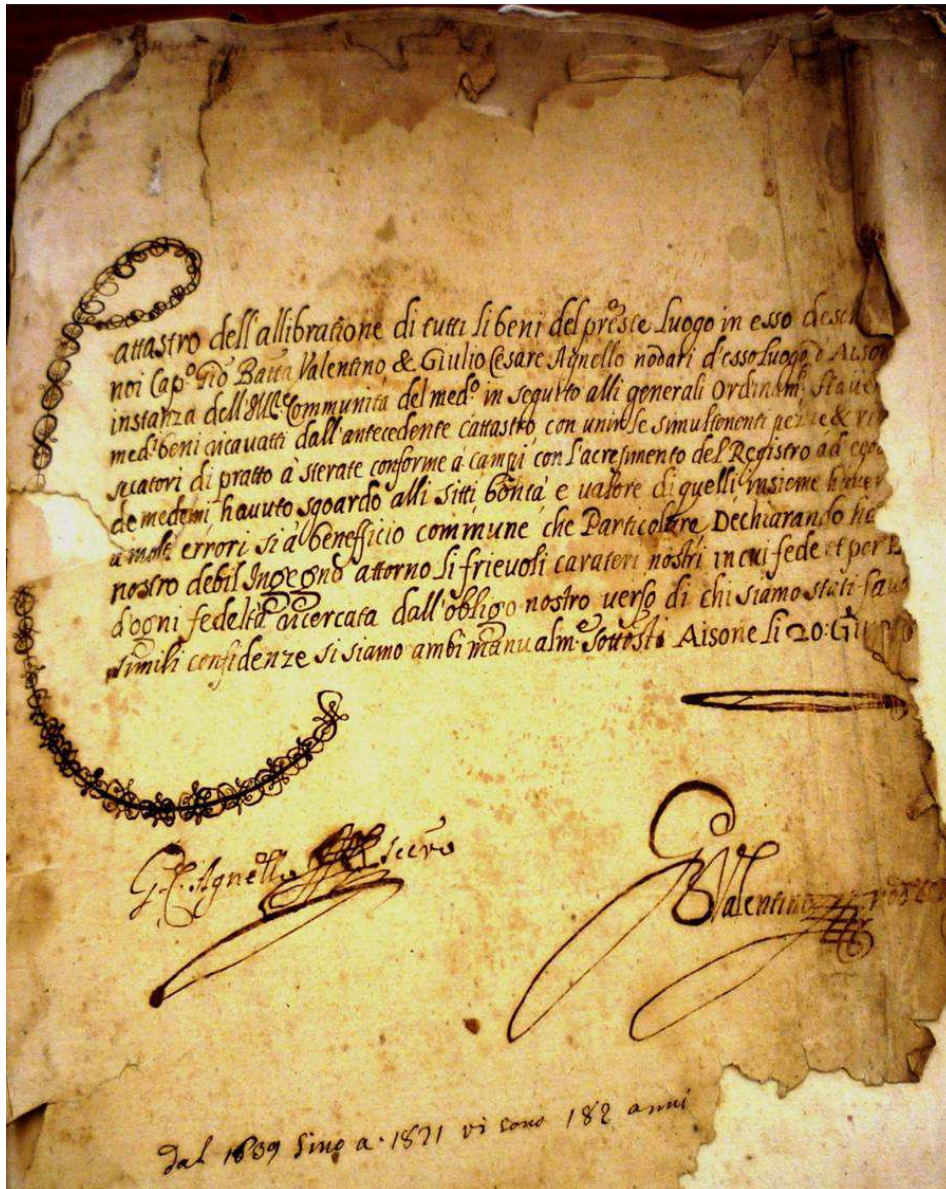 Cattastro dell'allibratione di tutti li beni del prẽste Luogo in esso
noi Cap.º Gio Batta Valentino & Giulio Cesare Agnello nodari d'esso Luogo d'
instanza dell' Communità del med.º in seguito alli generali Ordinam.
med.ⁱ beni ricavatti dall'antecedente cattastro, con unirle simultenenti pezze &
secatori di pratto à sterate conforme à campi con l'acresimento del Registro ad
de medemi, havuto sguardo alli sitti bontà e valore di quelli, insieme
a molti errori si à beneffitio commune che Particolare Dechiarando
nostro debil Ingegno attorno li frievoli carateri nostri in cui fede et per
d'ogni fedeltà ricercata dall'obligo nostro verso di chi siamo stati
simili confidenze si siamo ambi manualmᵉ sottosti Aisone li 20.
G. C. Agnello Secrº
G B Valentino
dal 1639 sino a. 1821 vi sono 182 anni